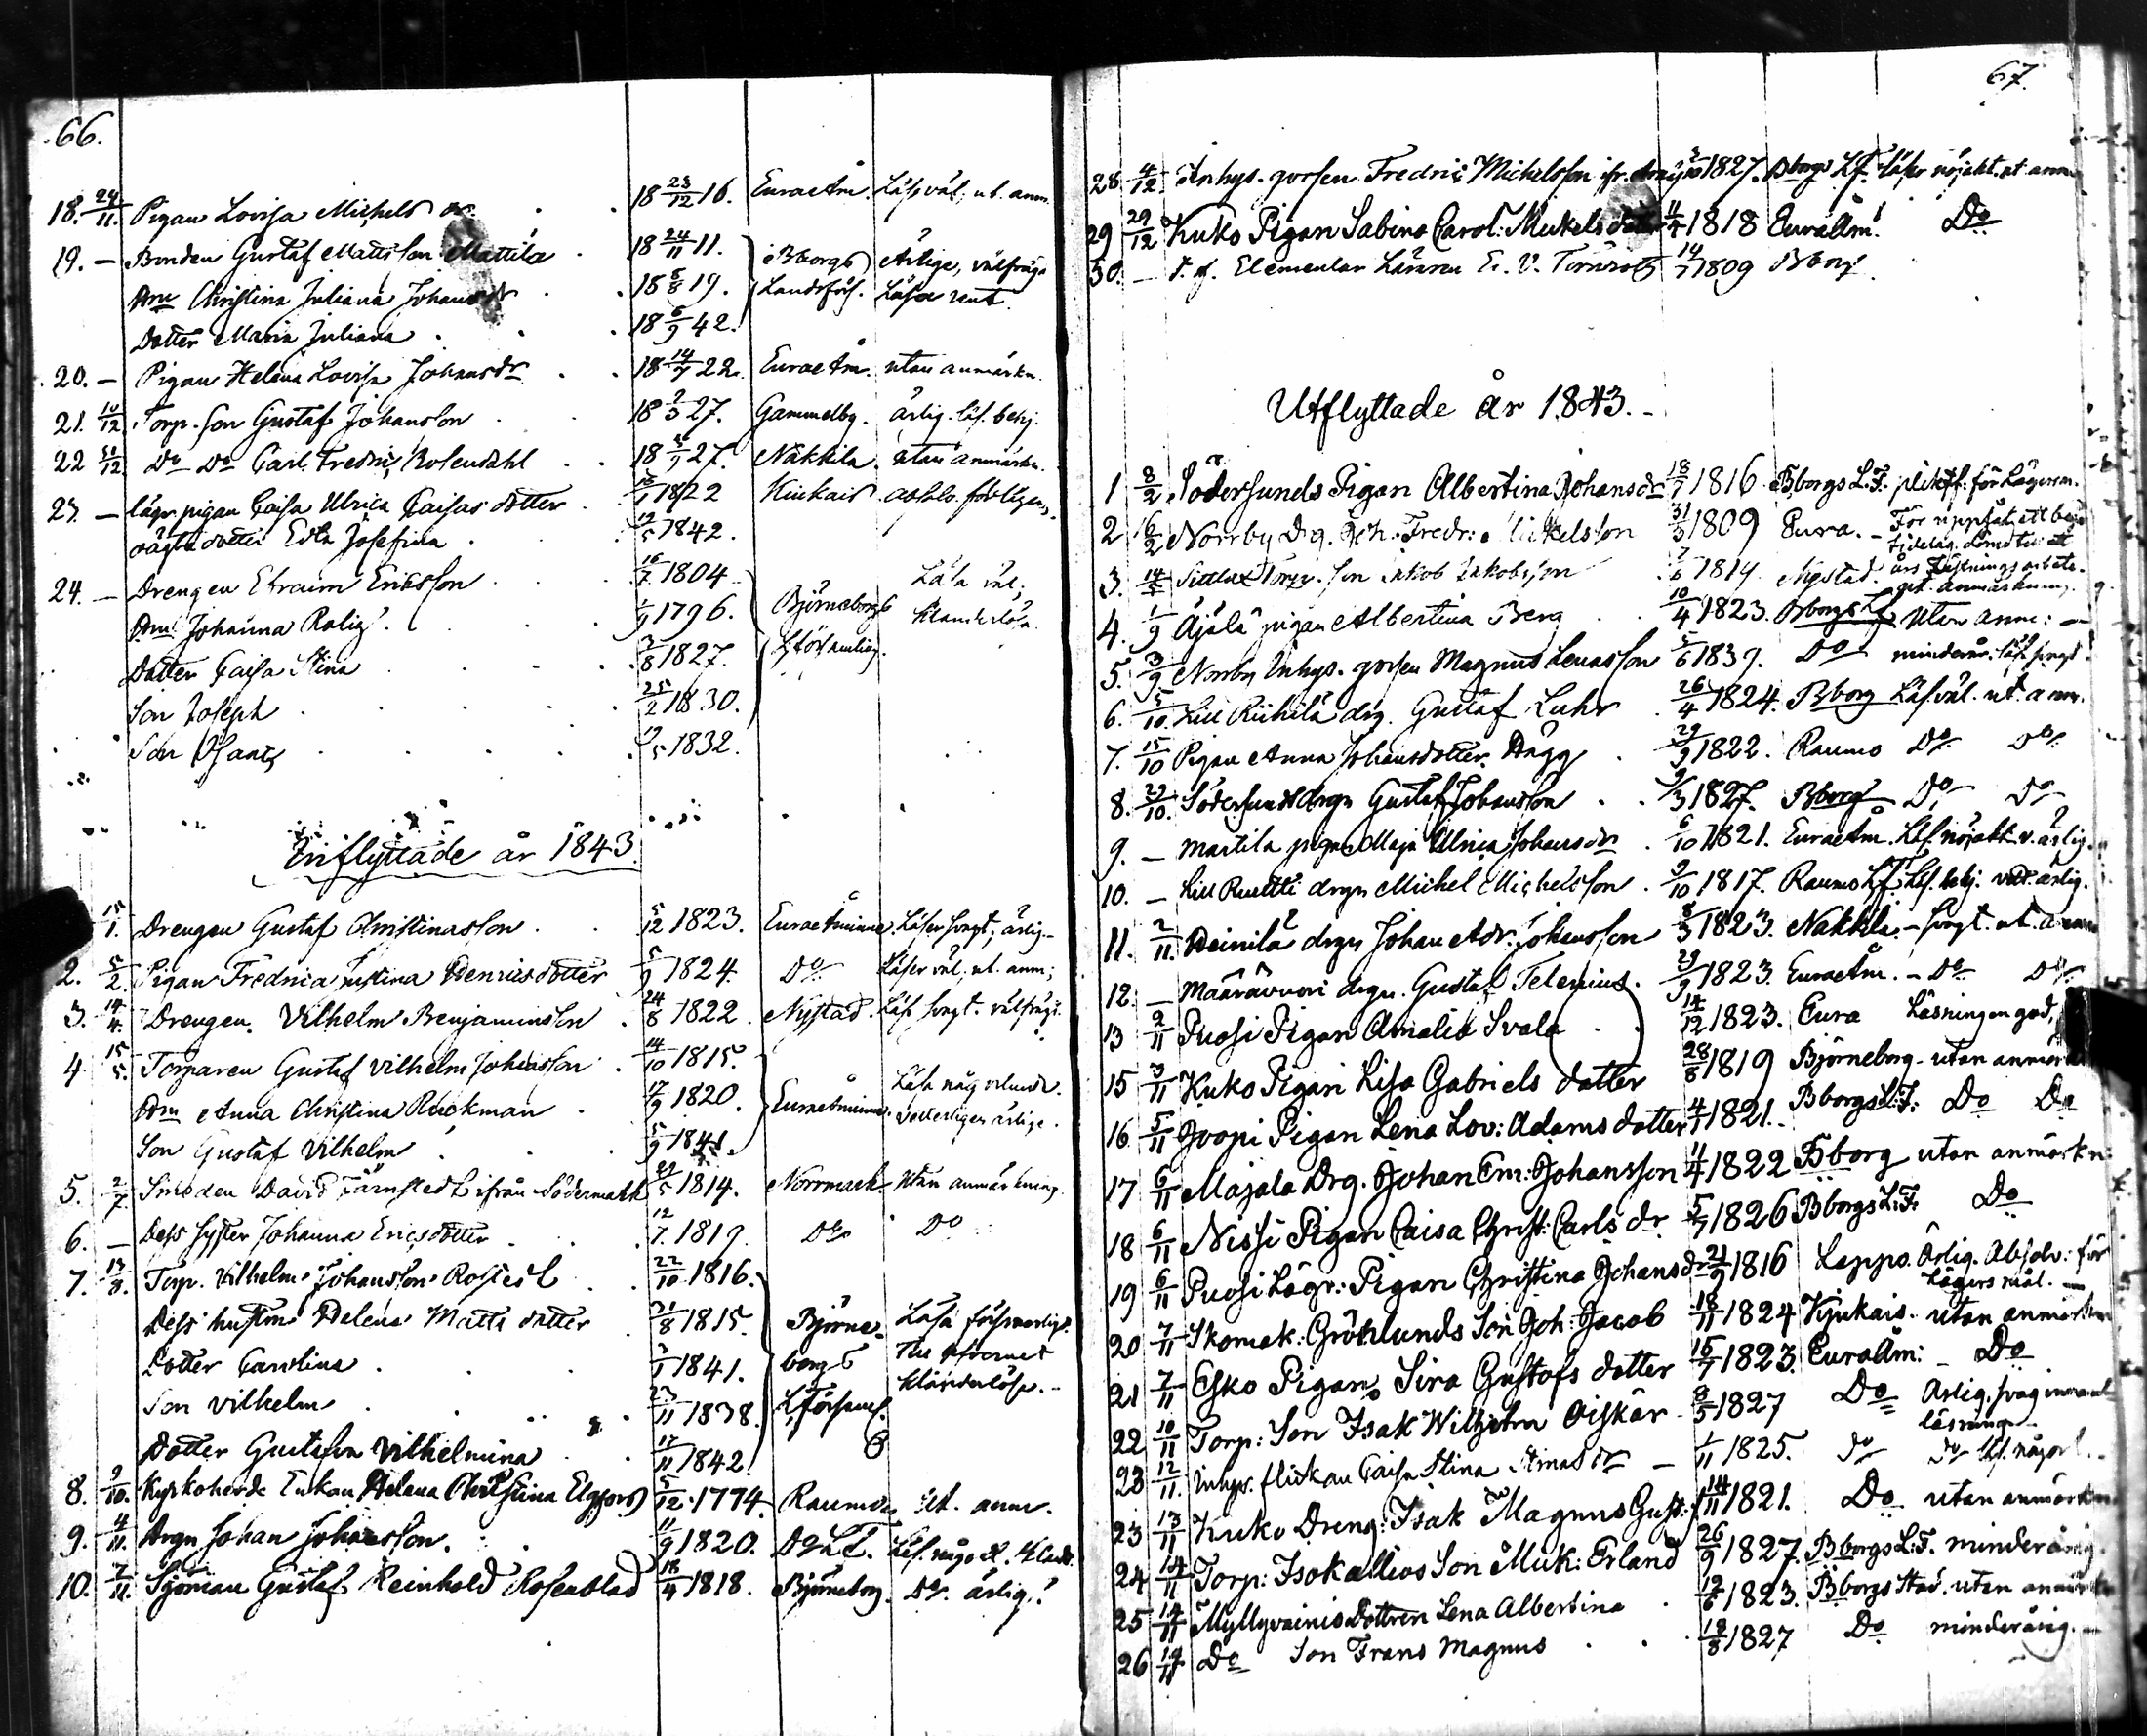 66.
18. 24/11. Pigan Lovisa Michels dr. 18 23/12 16. Euraåm. Läs. väl; ut. anm.
19. — Bonden Gustaf Mattsson Mattila 18 24/11 11. Bborgs Ärlige, välfrägd
Hru Christina Juliana Johansdr 18 8/8 19. Landsförs. Läsa rent
Dotter Maria Juliana 18 6/9 42.
20. — Pigan Helena Lovisa Johansdr 18 14/7 22. Euraåm. utan anmärkn.
21. 10/12 Torp. son Gustaf Johansson 18 2/3 27. Gammelby. ärlig. läs. behj.
22 Do Do Carl Fredric Rosendahl 27. Nakkila. utan anmärkn.
23. — lägr. pigan Caisa Ulrica Caisas dotter 1822 Kiukais. absolv. för lägers.
oägta dotter Edla Josefina 12/5 1842.
24. — Drengen Efraim Ericsson 16/7 1804 Läsa väl;
Hru Johanna 1796. Björneborgs klanderlösa.
Dotter Caisa Stina 3/8 1827. L.församling.
Son Joseph 25/2 1830.
Son Frans 1832.
Inflyttade år 1843.
15/1. Drengen Gustaf Christinasson 5/12 1823. Euraåminne. Läser svagt; ärlig.
2. 5/2. Pigan Fredrica Justina Henricsdotter 5/9 1824. Do Läser väl; ut. anm;
3. 14/4. Drengen Vilhelm Benjaminsson 24/8 1822. Nystad. Läs. svagt. välfrägd.
4 15/5. Torparen Gustaf Vilhelm Johansson 14/10 1815.
Hru Anna Christina Ruckman 17/9 1820. Euraåminne. Läsa någorlunda.
Son Gustaf Vilhelm 5/9 1841. ärlige.
5. 2/7. Smeden David Färnstedt ifrån Södermark 29/5 1814. Norrmark Utan anmärkning
6. — Dess syster Johanna Ericsdotter 12/7. 1819. Do Do
7. 13/8. Torp. Vilhelm Johansson Rostedt 22/10 1816.
Dess hustru Helena Matts dotter 21/8 1815. Björne- Läsa försvarligt.
Dotter Carolina 1841. borgs
Son Vilhelm 23/11 1838. L.församl. klanderlöse.
Dotter Gustafva Vilhelmina 17/11 1842.
8. 9/10. Kyrkoherde Enkan Helena Christina Elgfors 5/12 1774. Raumo ut. anm.
9. 4/11. Drgn Johan Johansson 11/9 1820. Do L.F. Läs. någorl.
10. 7/11. Sjöman Gustaf Reinhold Rosenblad 18/4 1818. Björneborg. Do. ärlig.
67.
28 4/12 Inhys. gossen Fredric Michelsson 1827. Bborgs Lf. läser nöjakt. ut. anm.
29 29/12 Kuko Pigan Sabina Carol: Mickels dotter 4/4 1818 Euraåm! Do
30. — Elementar Läraren 14/7 1809 Bborg
Utflyttade år 1843.
1 8/2 Södersunds Pigan Albertina Johansdr 18/7 1816 Bborgs L.F. plikft. för Lägersm.
2 16/2 Norrby Drg. Joh. Fredr: Mickelsson 31/3 1809 Eura. —
3. 14/5 Torp. son Jakob Jakobsson 7/6 1819. Nystad. ut. anmärkning.
4. 1/9 Äjälä pigan Albertina Berg 10/4 1823. Bborgs Lf Utan anm: —
5. 3/9 Norrby Inhys. gossen Magnus Lenasson 5/6 1839. Do minderår. läs. svagt.
6. 5/10. Lill Riihilä drg. Gustaf Luhr 26/4 1824. Bborg Läs. väl. ut. anm.
7. 15/10 Pigan Anna Johansdotter Hägg 29/9 1822. Raumo Do Do
8. 29/10. Södersunds drgn Gustaf Johansson 9/3 1827. Bborg Do Do
9. — Martila pigan Maja Ulrica Johansdr 6/10 1821. Euraåm. Läs. nöjakt. v. ärlig.
10. — Lill Ruutti drgn Michel Michelsson 9/10 1817. Raumo Lf. Läs. behj. ärlig.
11. 2/11. Heinilä drgn Johan Adr. Johansson 8/3 1823. Nakkila. — svagt. ut. anm
12. — Määrävuori drgn. Gustaf Felenius. 29/9 1823. Euraåm. — Do Do
13 2/11 Puosi Pigan Amalia Svala 14/12 1823. Eura Läsningen god,
15 3/11 Kuko Pigan Lisa Gabriels dotter 28/8 1819 Björneborg — utan anmärk
16 5/11 Joopi Pigan Lena Lov: Adams dotter 4/7 1821. Bborgs L:F: Do Do
17 6/11 Majala Drg. Johan Em: Johansson 4/4 1822 Bborg utan anmärkn
18 6/11 Nissi Pigan Caisa Christ: Carls dr 5/7 1826 Bborgs L:F: Do
19 6/11 Puosi Lägr: Pigan Christina Johansdr 21/9 1816 Lappo. Ärlig. Absolv: för
Lägersmål. —
20 7/11 Skomak: Grönlunds Son Joh: Jacob 18/11 1824 Kjukais. utan anmärkn
21 7/11 Esko Pigan Sira Gustafs dotter 16/7 1823 Euraåm: — Do
22 10/11 Torp: Son Isak Wilhelm Oiskar 8/5 1827 Do Ärlig, svag innanl
läsning —
23 12/11. Inhys. flickan Caisa Stina Stinasdr — 1/11 1825. Do Do läs. någorl.
23 13/11 Kuko Dreng: Isak Magnus Gust: 14/11 1821. Do utan anmärkn
24 14/11 Torp: Isokallios Son Mik: Erland 26/9 1827. Bborgs L:F. minderårig.
25 14/11 Myllyvainis Dottren Lena Albertina 12/6 1823. Bborgs Stad. utan anmärkn
26 14/11 Do Son Frans Magnus 18/8 1827 Do minderårig. —